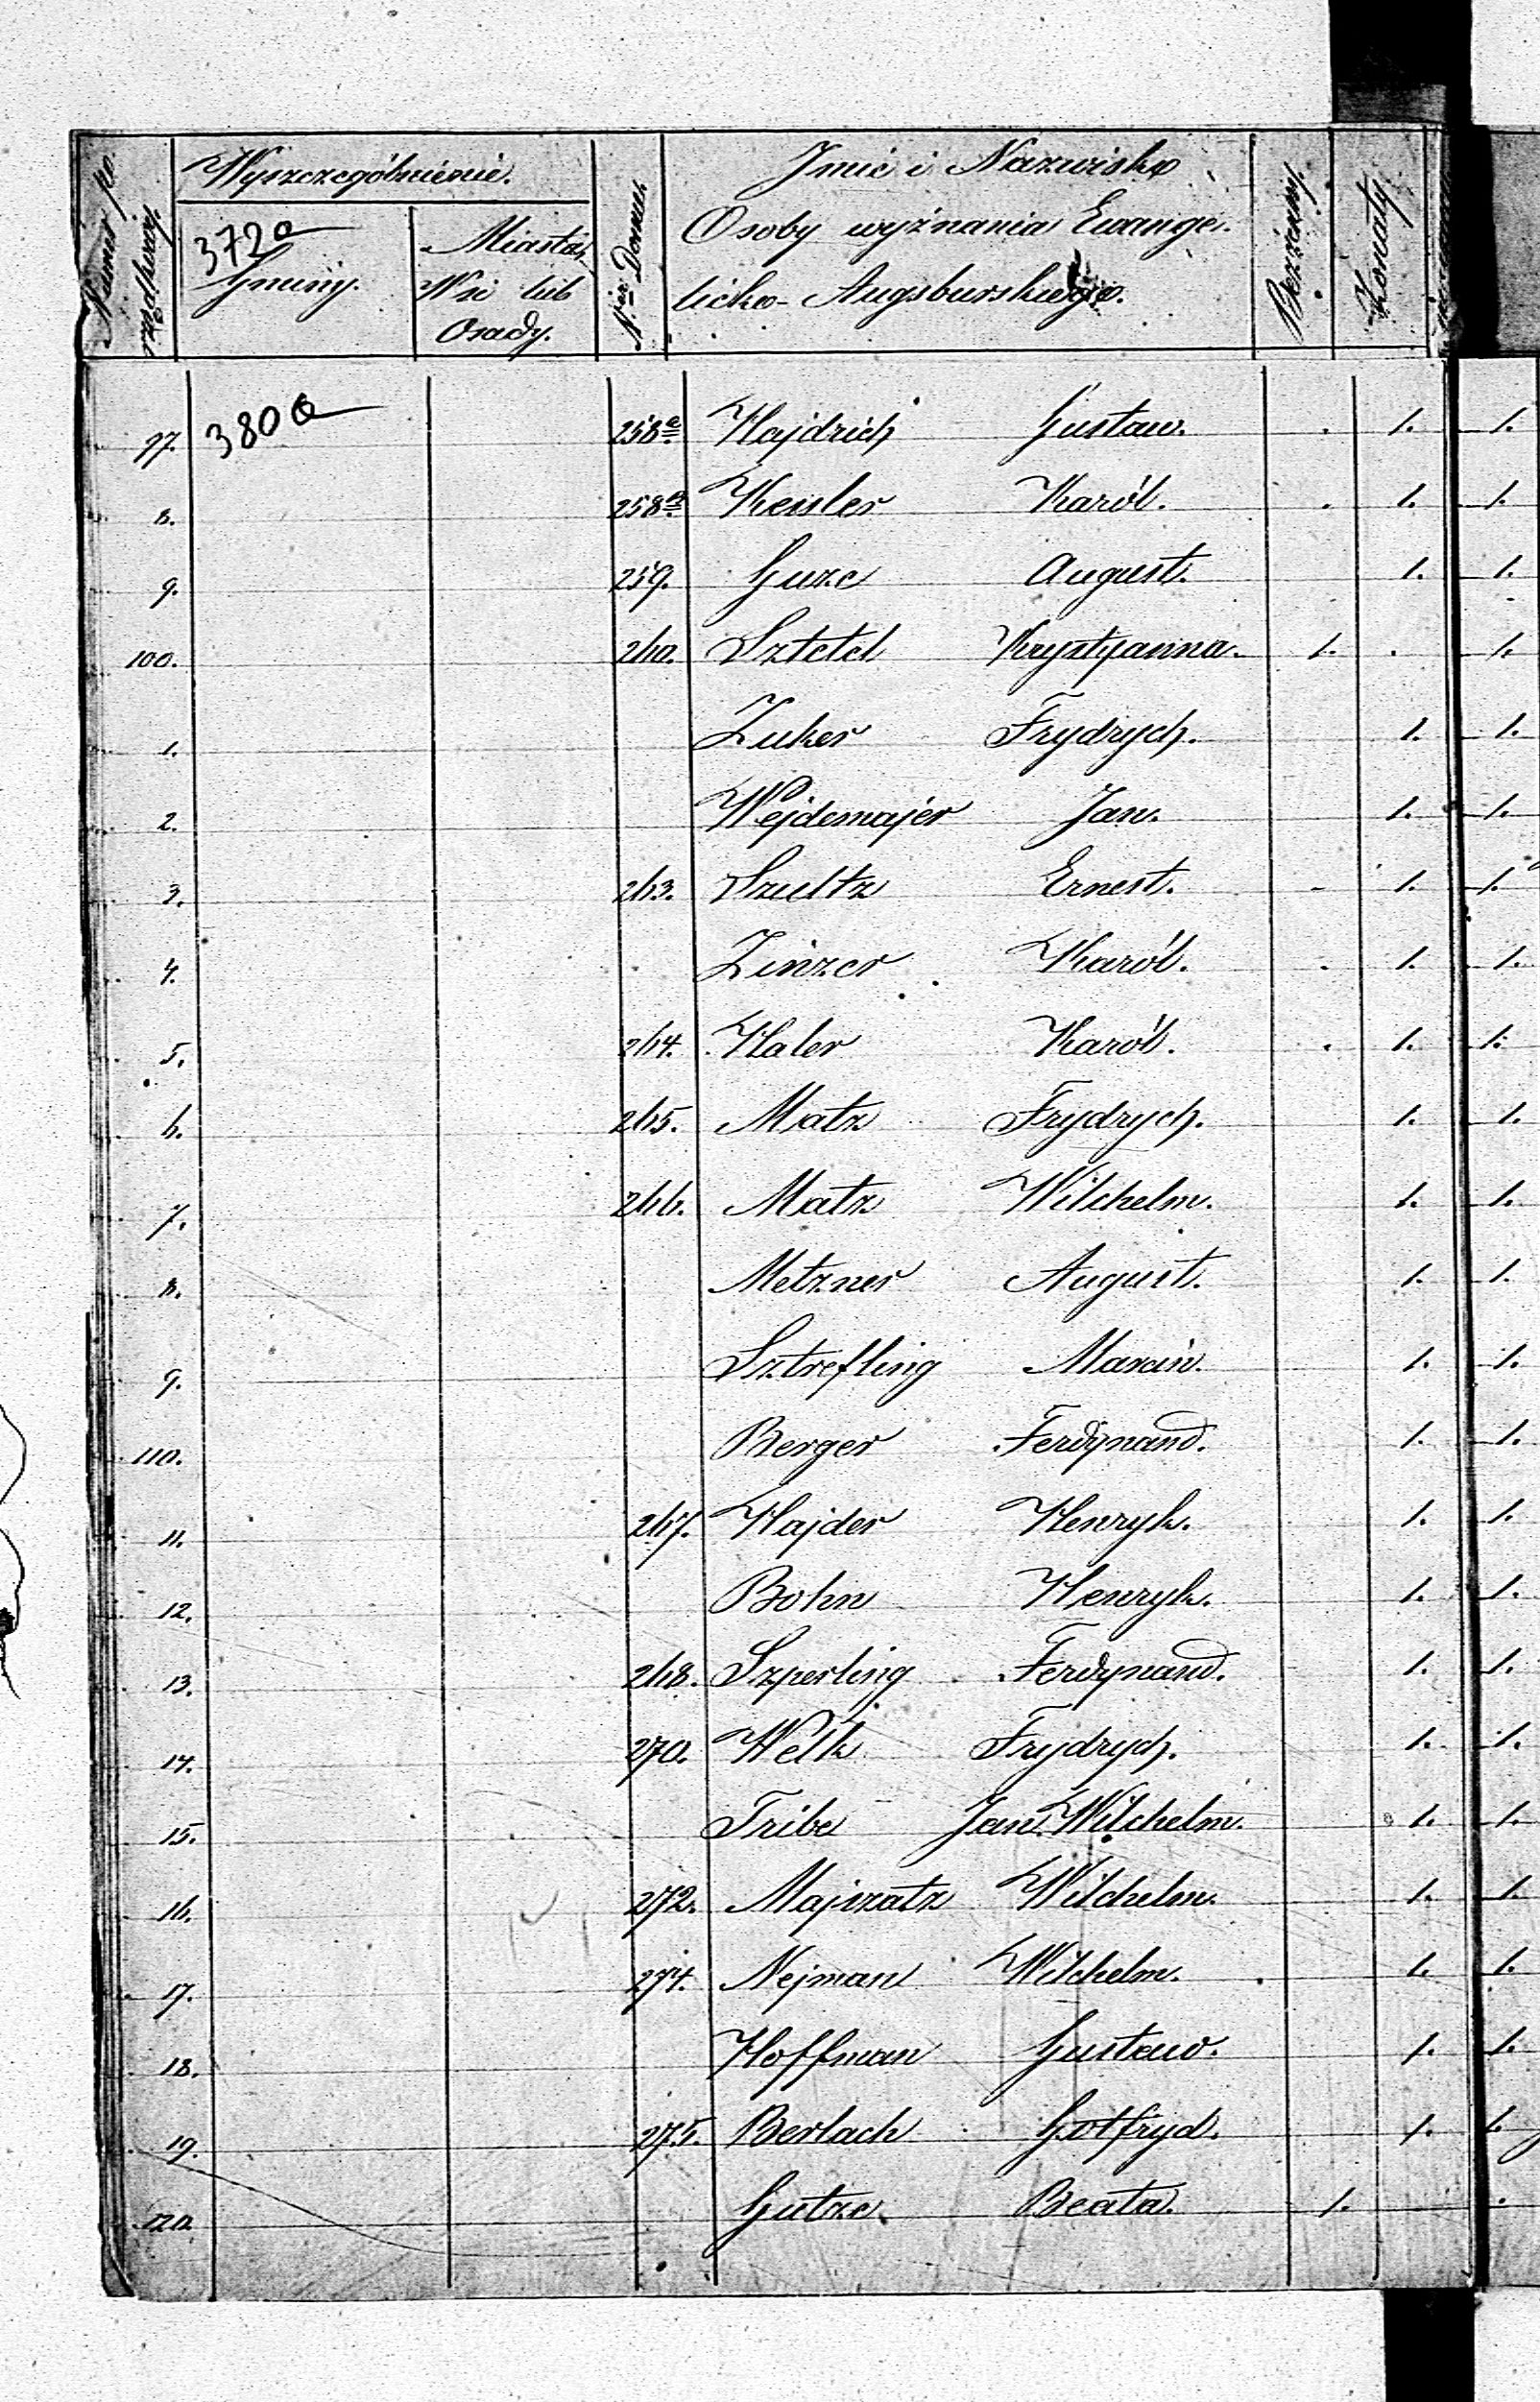 Numer po rządkowy.
Wyszczególnienie.
372a
Gminy.
Miasta,
Wsi lub
Osady.
Nr Domu.
Jmie i Nazwisko
Osoby wyznania Ewange-
licko-Augsburskiego.
Bezżenny.
Żonaty
380a
97. 258a Hajdrich Gustaw. 1. 1.
8. 258 Kessler Karól. 1. 1.
9. 259. Guze August. 1. 1.
100. 260. Sztetel Krystyanna. 1. 1.
1. Zuker Frydrych. 1. 1.
2. Wejdemajer Jan. 1. 1.
3. 263. Szultz Ernest. 1. 1.
4. Zinzer Karól. 1. 1.
5. 264. Haler Karól. 1. 1.
6. 265. Matz Frydrych. 1. 1.
7. 266. Matz Wilchelm. 1. 1.
8. Metzner August. 1. 1.
9. Sztrefling Marcin. 1. 1.
110. Berger Ferdynand. 1. 1.
11. 267. Hajder Henryk. 1. 1.
12. Bohn Henryk. 1. 1.
13. 268. Szperling Ferdynand. 1. 1.
14. 270. Welk Frydrych. 1. 1.
15. Tribe Jan Wilchelm. 1. 1.
16. 272. Majzatz Wilchelm. 1. 1.
17. 274. Nejman Wilchelm. 1. 1.
18. Hoffman Gustaw. 1. 1.
19. 275. Berlach Gotfryd. 1. 1.
120. Gutze Beata. 1.